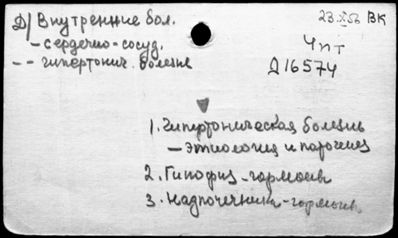 Д/ Внутренние бол.
23 XI 53 ВК
– сердечно-сосуд.
Чпт
– – гипертонич. болезнь
Д16574
1. Гипертоническая болезнь
– этиология и патогенез
2. Гипофиз – гормоны
3. Надпочечники – гормоны